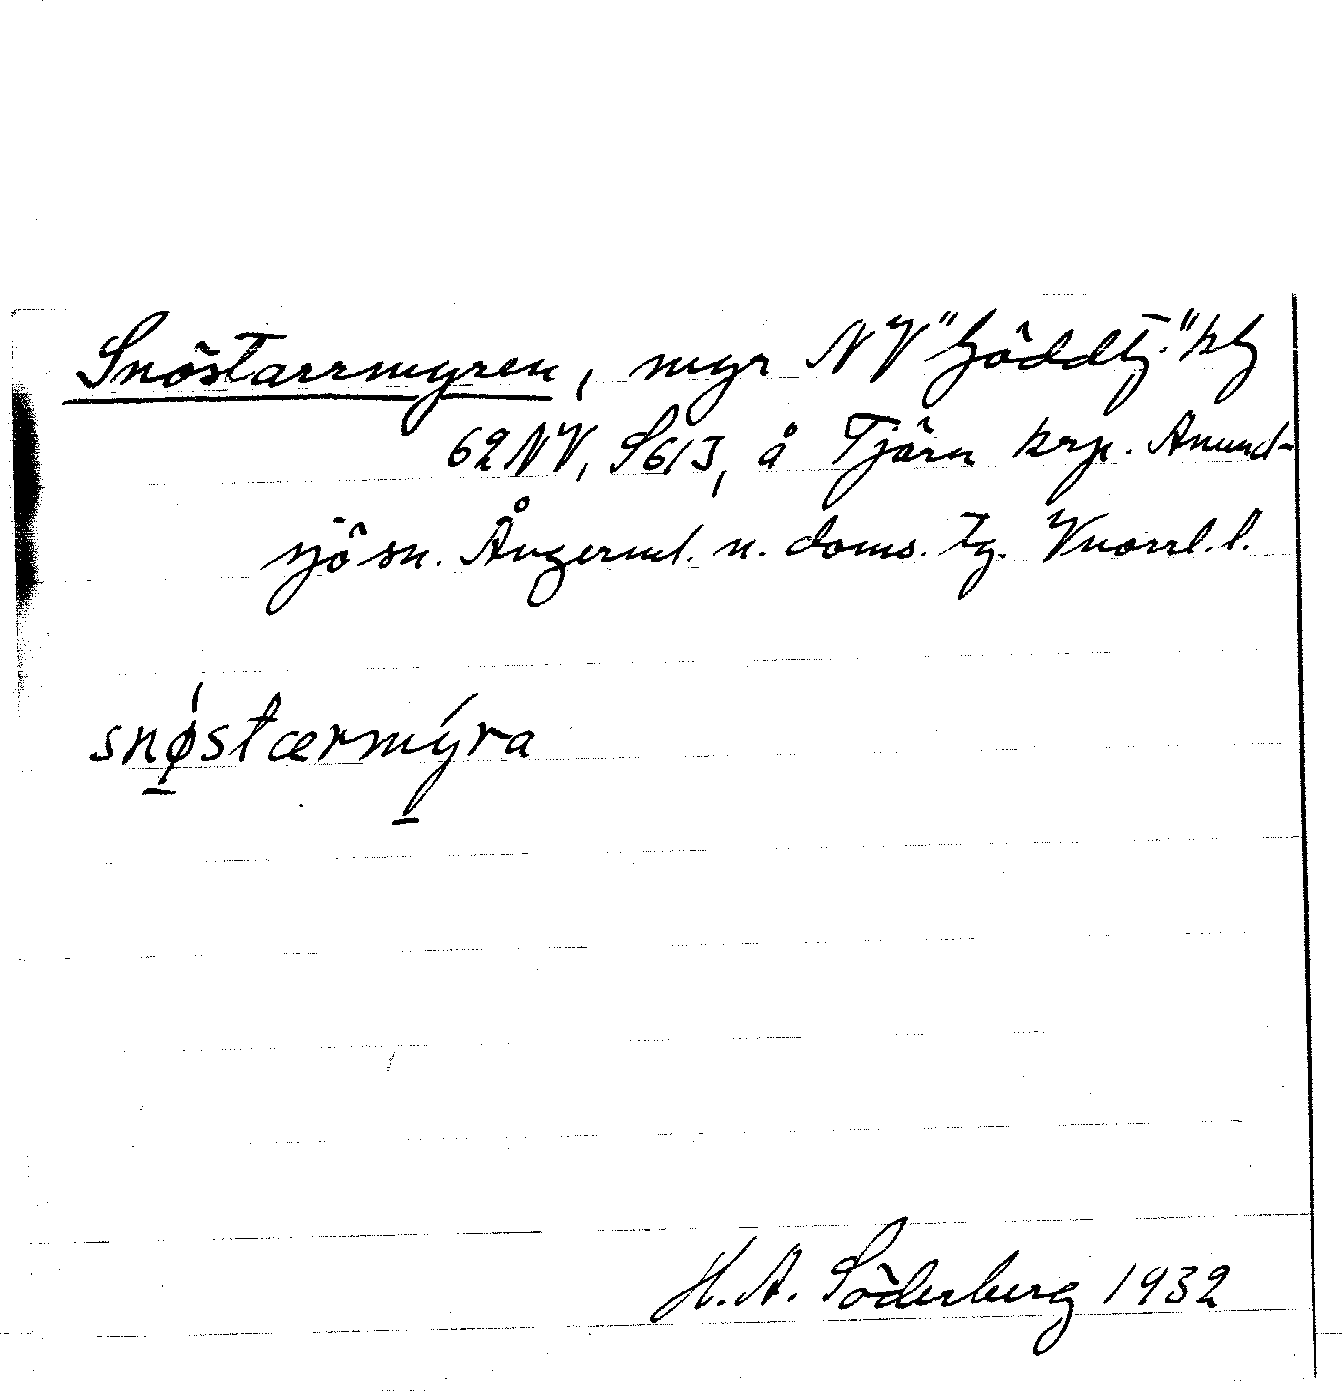 Snöstarrmyren, myr NV "Gäddtj." kbl
62NV, S613, å Tjärn krp. Anund-
sjö sn. Ångerml. n. doms. tg. Vnorrl. l.
snǿ̠stærmý̠ra
H. A. Söderberg 1932